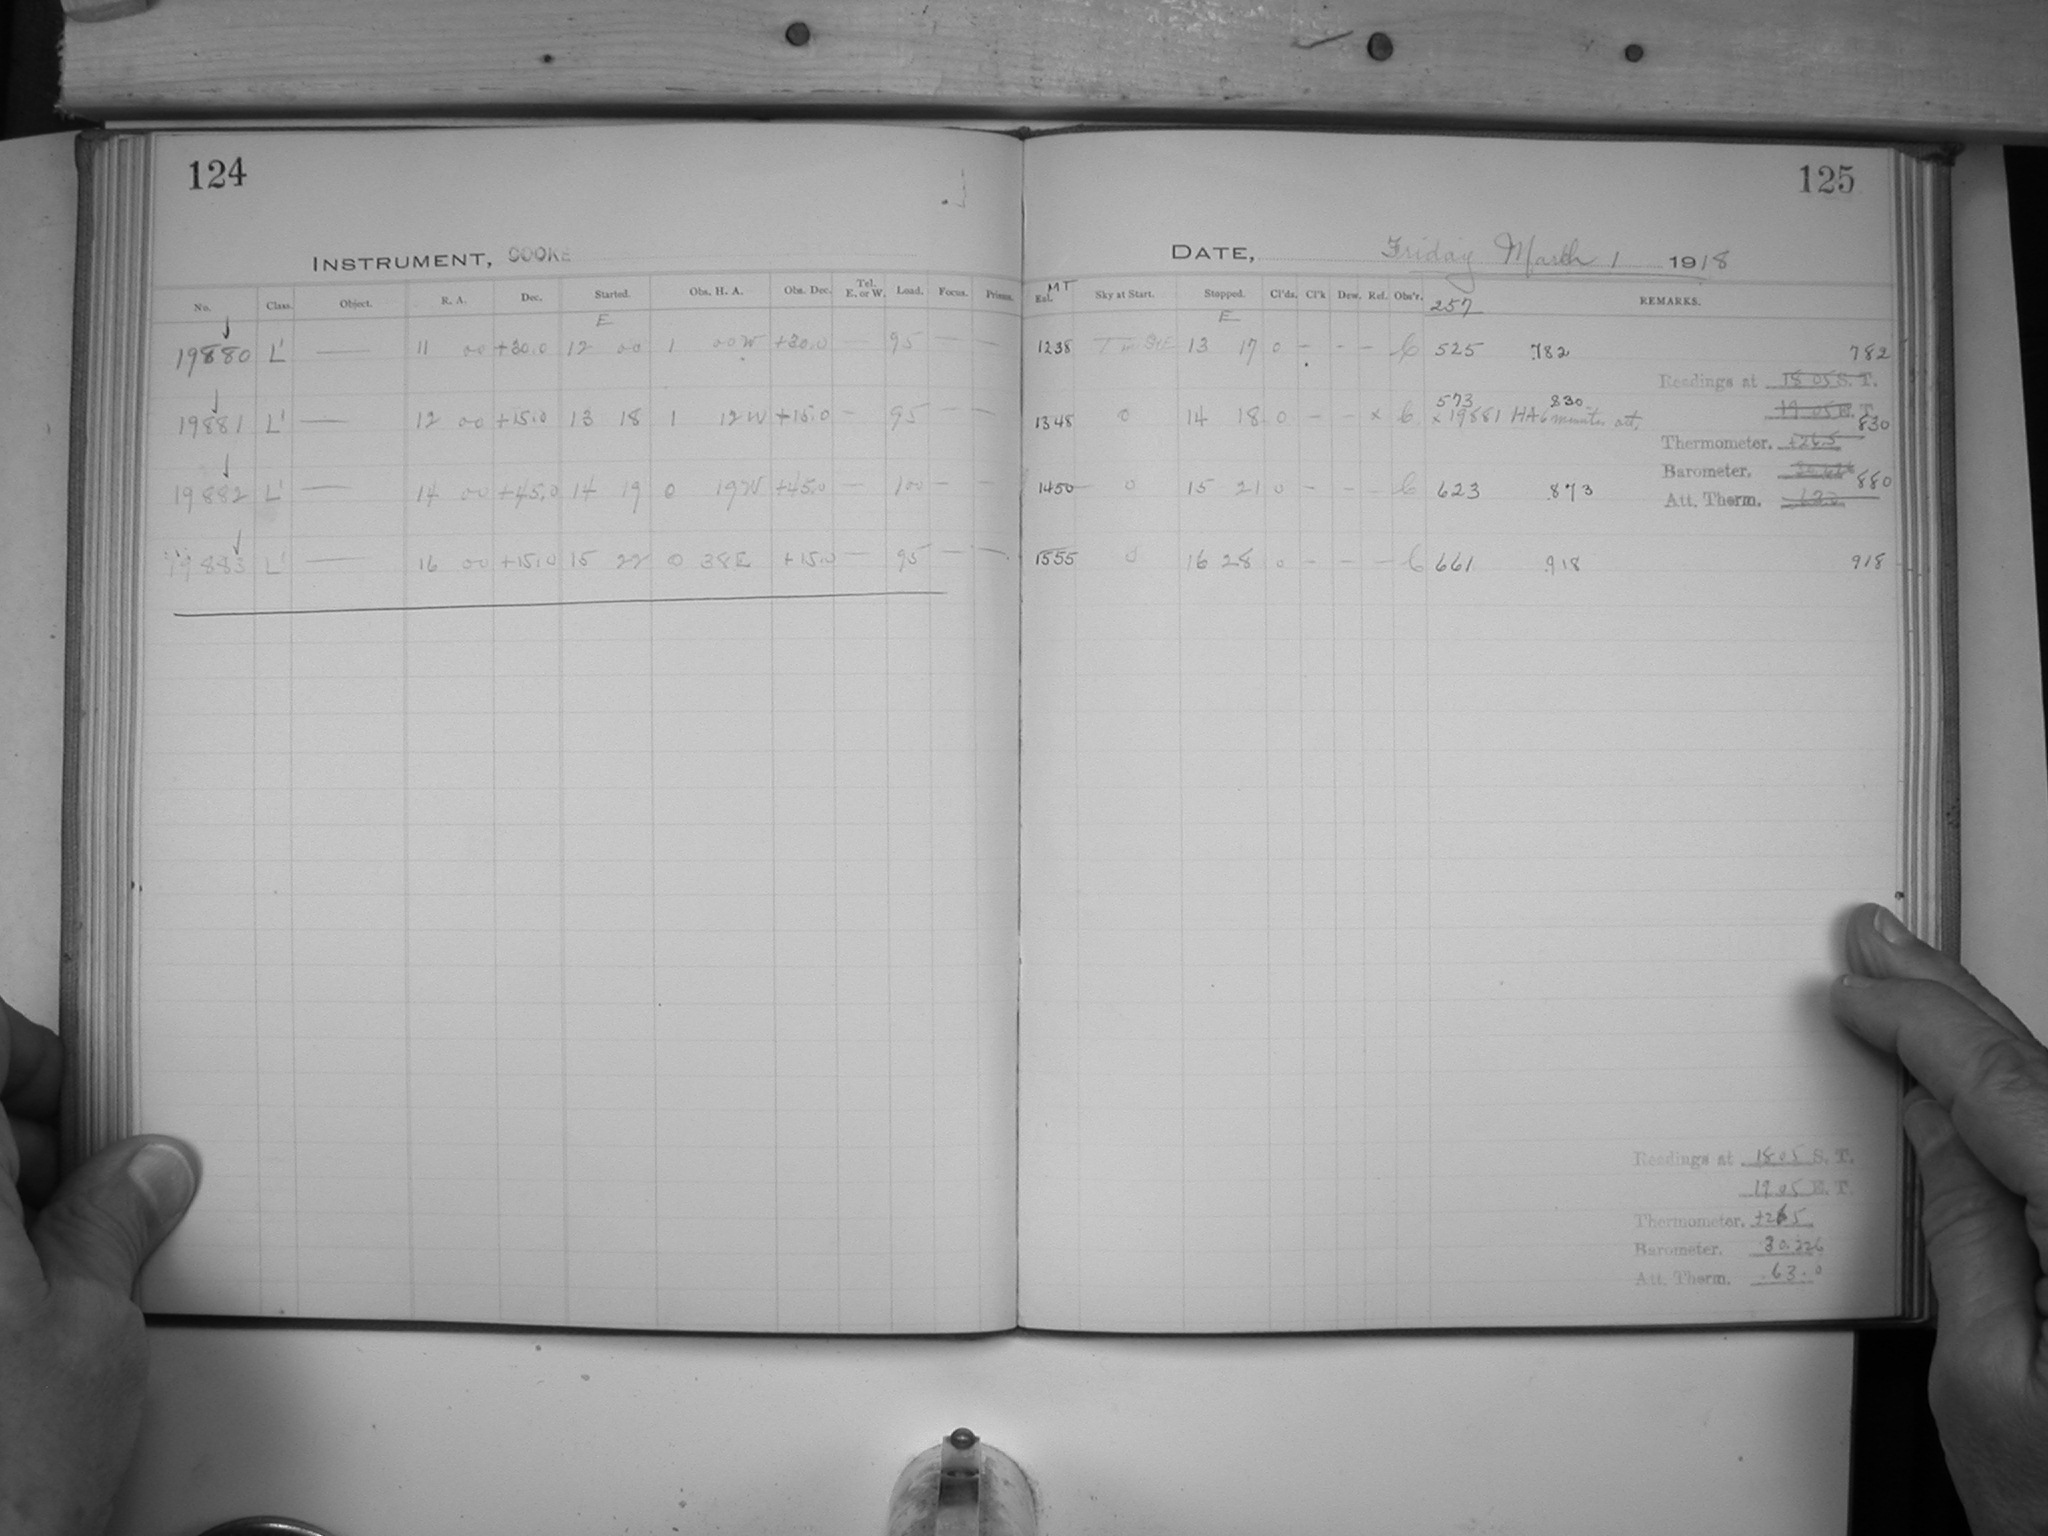 124
INSTRUMENT, COOKE
No. Class. Object. R. A. Dec. Started. Obs. H. A. Obs. Dec. Tel. E. or W. Load. Focus. Prisms.
E
19880 L' — 11 00 +30.0 12 00 1 00W +30.0 — 95 — —
19881 L' — 12 00 +15.0 13 18 1 12W +15.0 — 95 — —
19882 L' — 14 00 +45.0 14 19 0 19W +45.0 — 100 — —
19883 L' — 16 00 +15.0 15 22 0 38E +15.0 — 95 — —
125
DATE, Friday March 1 1918
MT
Exl. Sky at Start. Stopped. Cl'ds. Cl'k Dew. Ref. Obs'r. 257 REMARKS.
E
1238 13 17 0 - - - C 525 782 782
Readings at 18 05 S. T.
19 05 E. T.
573 830
1348 0 14 18 0 - - x C x 19881 HA 6 minutes 830
Thermometer. +26.5
Barometer.
1450 0 15 21 0 - - - C 623 873 880
Att. Therm. 63.0
1555 0 16 28 0 - - - C 661 918 918
Readings at 18 05 S. T.
19 05 E. T.
Thermometer. +26.5
Barometer. 30.226
Att. Therm. 63.0